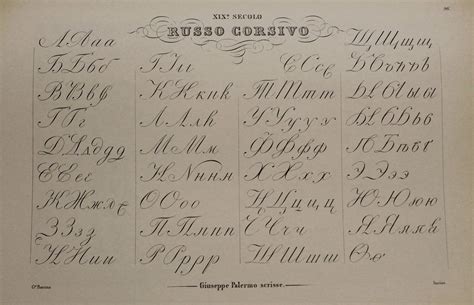 XIX.º SECOLO
RUSSO CORSIVO
ААаа
ББбб
ВВвв
ГГг
ДДддд
ЕЕее
ЖЖжж
ЗЗзз
ИИии
ІІіі
ККкк
ЛЛлл
ММм
ННнн
ОООо
ППппп
РРррр
ССсс
ТТтт
УУууу
ФФфф
ХХхх
ЦЦццц
ШШшш
ЩЩщщщ
ЮЮюю
ЯЯяя
Ѳѳ
Giuseppe Palermo scrisse.